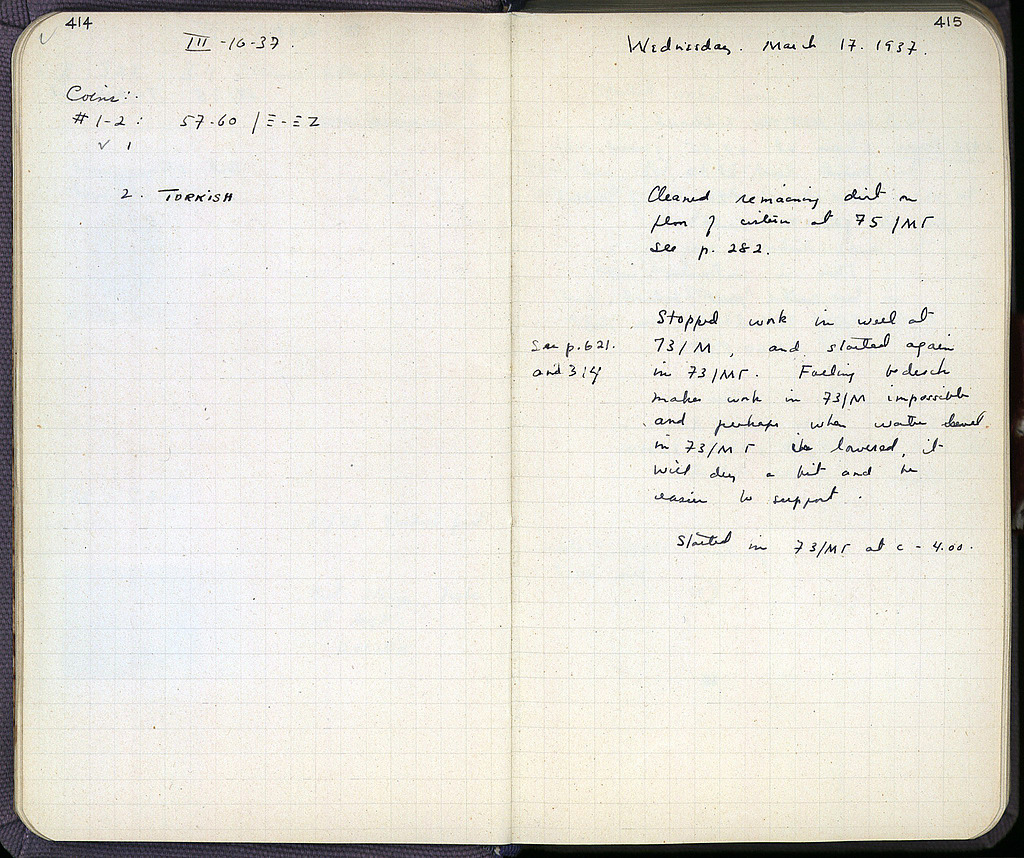 414
III -16-37.
Coins:
# 1-2 : 57-60 / Ξ - ΞΖ
✓ 1
2. TURKISH
415
Wednesday. March 17. 1937.
Cleaned remaining dirt on
floor of cistern at 75/ΜΓ
see p. 282.
Stopped work in well at
73/Μ, and started again
in 73/ΜΓ. Falling bedrock
makes work in 73/Μ impossible
and perhaps when water level
in 73/ΜΓ is lowered, it
will dry a bit and be
easier to support.
See p. 621.
and 314
Started in 73/ΜΓ at c - 4.00.